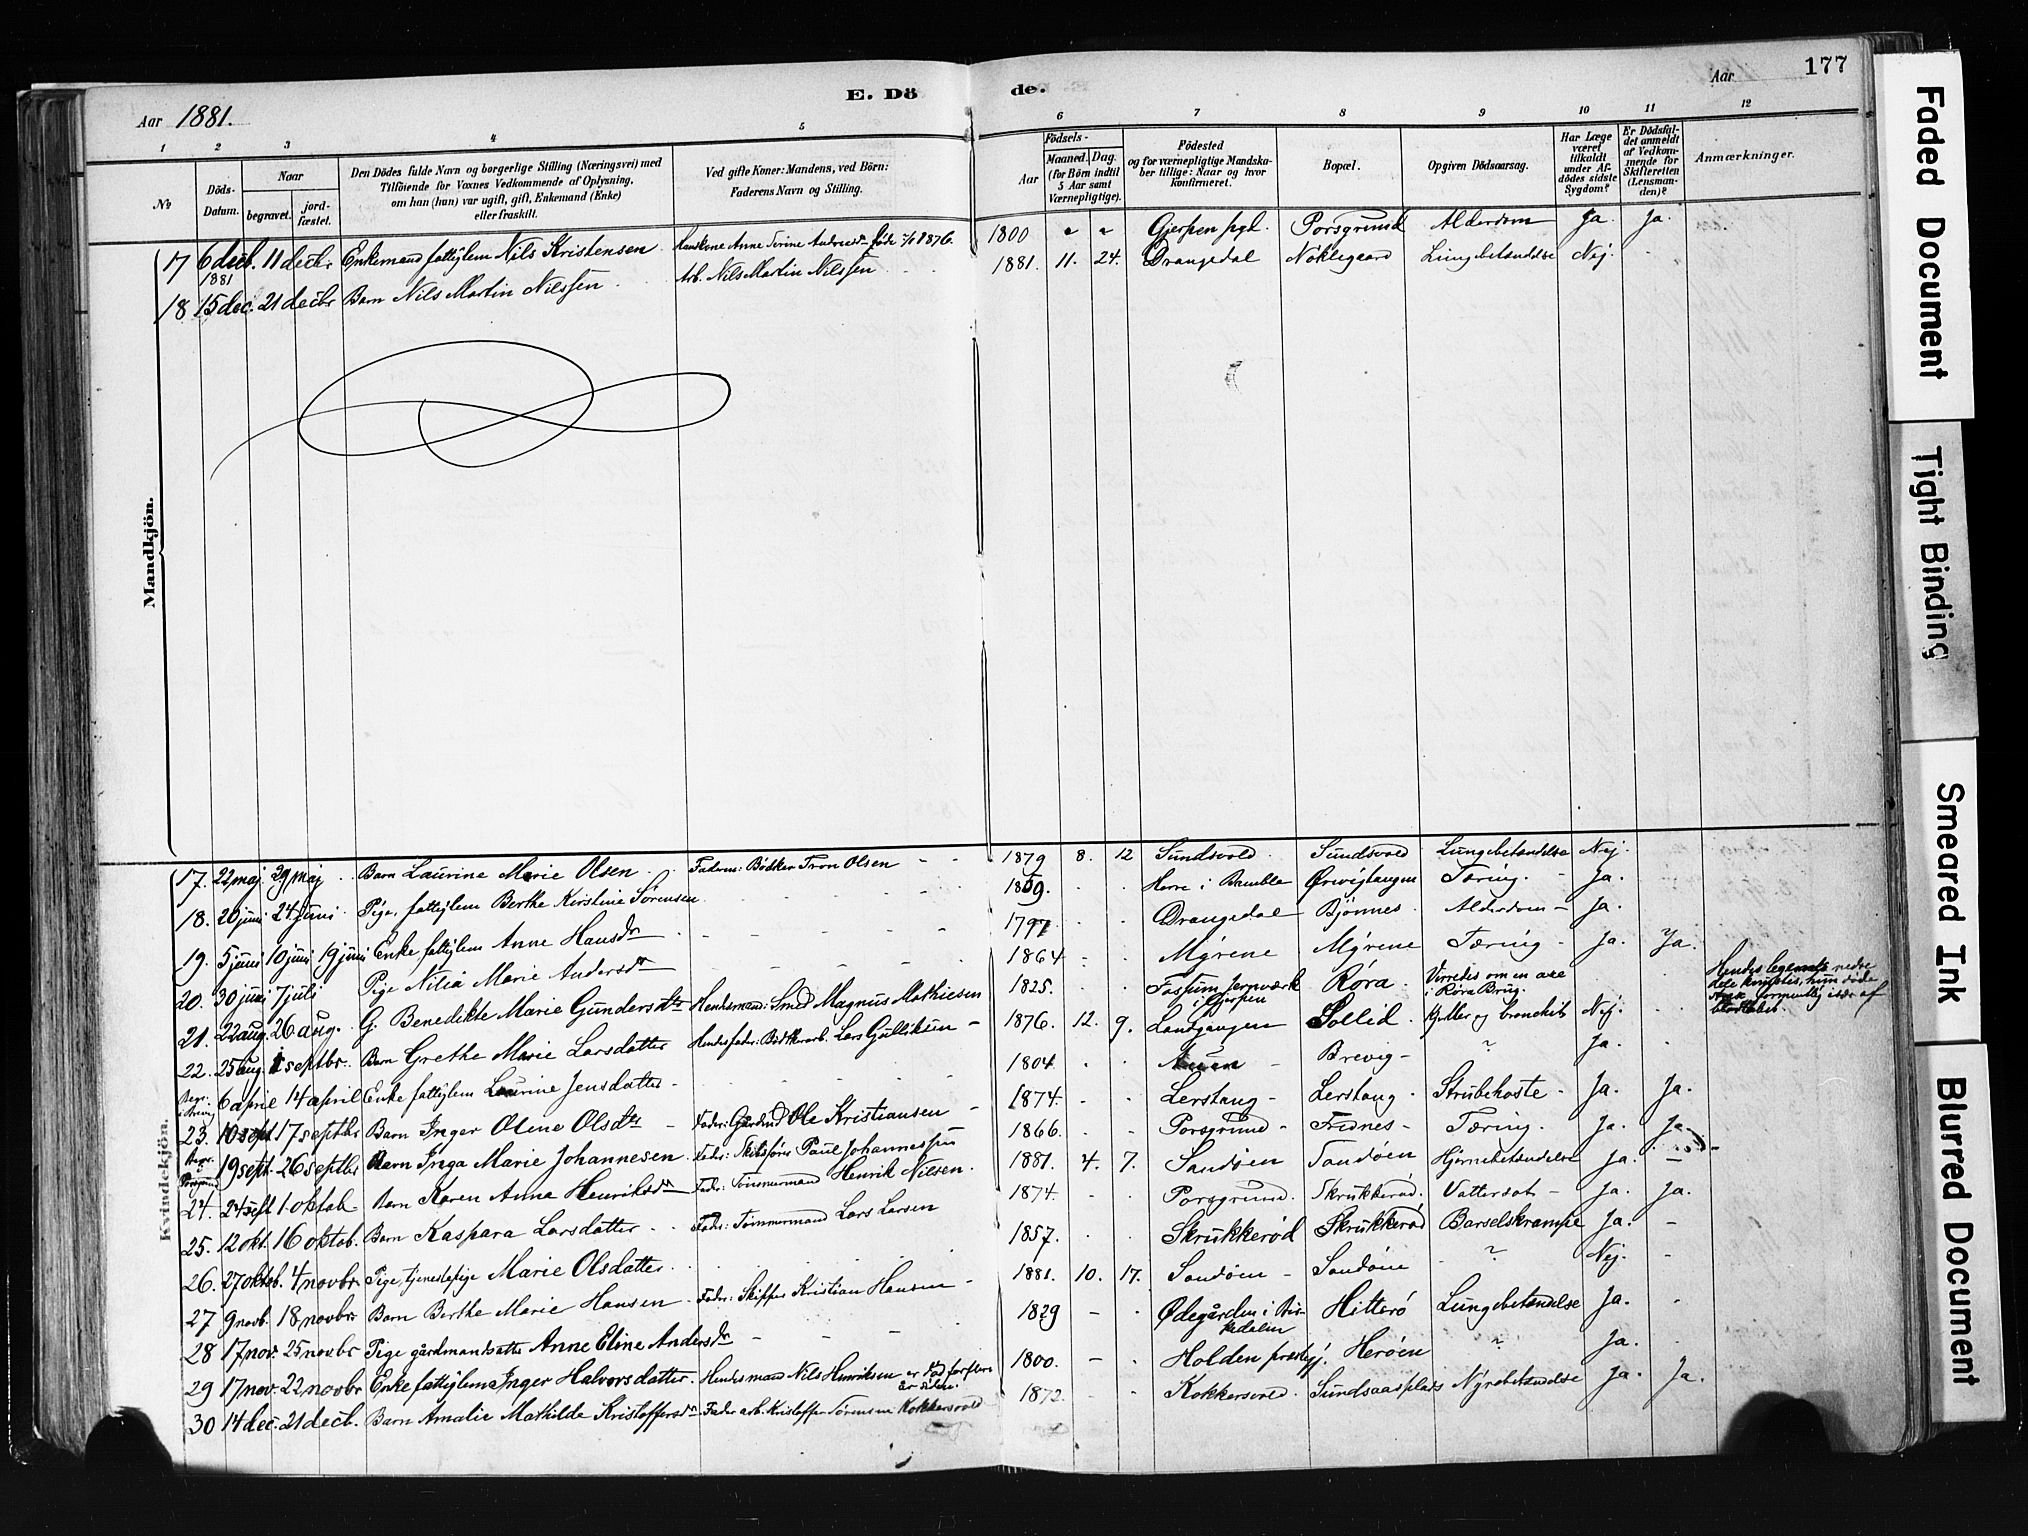 E. Dö de.
Aar 1881.
Aar 177
1 2 3 4 5 6 7 8 9 10 11 12
№
Döds-Datum.
Naar
begravet.
jordfæstet.
Den Dödes fulde Navn og borgerlige Stilling (Næringsvei) med
Tilföiende for Voxnes Vedkommende af Oplysning,
om han (hun) var ugift, gift, Enkemand (Enke)
eller fraskilt.
Ved gifte Koner: Mandens, ved Börn:
Faderens Navn og Stilling.
Födsels-
Aar
Maaned. Dag.
(for Börn indtil
5 Aar samt
Værnepligtige).
Födested
og for værnepligtige Mandska-
ber tillige: Naar og hvor
konfirmeret.
Bopæl.
Opgiven Dödsaarsag.
Har Læge
været
tilkaldt
under Af-
dödes sidste
Sygdom?
Er Dödsfal-
det anmeldt
af Vedkom-
mende for
Skifteretten
(Lensman-
den)?
Anmærkninger.
Mandkjön.
17 6 decb. 1881 11 decbr Enkemand fattiglem Nils Kristensen Hans kone Anne Torine Andersdr döde 1876. 1800 Gjerpen pgl. Porsgrund Alderdom Ja. Ja.
18 15 dec. 21 decbr Barn Nils Martin Nilssen Arb. Nils Martin Nilssen 1881. 11. 24. Drangedal Noklegaard Lungebetændelse Nej.
Kvindekjön.
17. 22 maj 29 maj Barn Laurine Marie Olsen Faderen: Bødker Tron Olsen 1879 8. 12 Sundsvold Sundsvold Lungebetændelse Nej.
18. 20 juni 24 juni Pige, fattiglem Berthe Kirstine Sörensen 1859. Herre i Bamble Ørvigtangen Tæring. Ja.
19. 5 juni 10 juni 19 juni Enke fattiglem Anne Hansdr 1797 Drangedal Bjönnes Alderdom Ja.
20. 30 juni 7 juli Pige Nilia Marie Andersdr 1864 Myrene Myrene Tæring Ja. Ja.
21. 22 aug. 26 aug. G. Benedikte Marie Gundersdtr Hendes mand: Smed Magnus Mathiesen 1825. Fossum Jernværk i Gjerpen Röra Virredes om en axe i Röra Brug.
Hendes legemes nedre dele knustes, hun døde strax, formentlig især af blodtabet.
22. 25 aug. 1 septbr. Barn Grethe Marie Larsdatter Hendes fader: Bødkerarb. Lars Gulliksen 1876. 12. 9. Landgangen Sollid Kjertler og bronchit Nej.
6 april 14 april Enke fattiglem Laurine Jensdatter 1804 Brevig ? Ja.
23. 10 sept 17 septbr Barn Inger Oline Olsdtr Fader: Gårdmd Ole Kristiansen 1874. Lerstang Lerstang Strubehoste Ja. Ja.
19 sept. 26 septbr Barn Inga Marie Johannesen Fader: Skibsförer Paul Johannessen 1866. Porsgrund Fridnes Tæring. Ja. Ja
24. 24 sept 1. oktob Barn Karen Anna Henriksdr Fader: Tömmermand Henrik Nilsen. 1881. 4. 7. Sandöen Sandöen Hjernebetændelse Ja.
25. 12 okt. 16 oktob. Barn Kaspara Larsdatter Fader: Tömmermand Lars Larsen 1874 Porsgrund. Skrukkeröd. Vattersot Ja. Ja.
26. 27 oktob. 4 novbr. Pige, tjenestepige Marie Olsdatter 1857. Skrukkeröd Skrukkeröd Barselskrampe Ja.
27 9 novb. 18 novbr Barn Berthe Marie Hansen Fader: Skipper Kristian Hansen 1881. 10. 17. Sandöen Sandöen ? Nej.
28 17 nov. 25 novbr Pige gårdmandsdatter Anne Eline Andersdr 1829 Ødegården i Birkedalen Hitterö Lungebetændelse Ja.
29 17 nov. 22 novbr Enke fattiglem Inger Halvorsdatter Hendes mand Nils Henriksen er död for flere år siden. 1800. Holden præstgj. Heröen ? Ja.
30 14 dec. 21 decb. Barn Amalie Mathilde Kristoffersdr Fader arb. Kristoffer Sörensen Kokkersvold 1872. Kokkersvold Sundsaasplads Nyrebetændelse Ja. Ja.
Faded Document
Tight Binding
Smeared Ink
Blurred Document